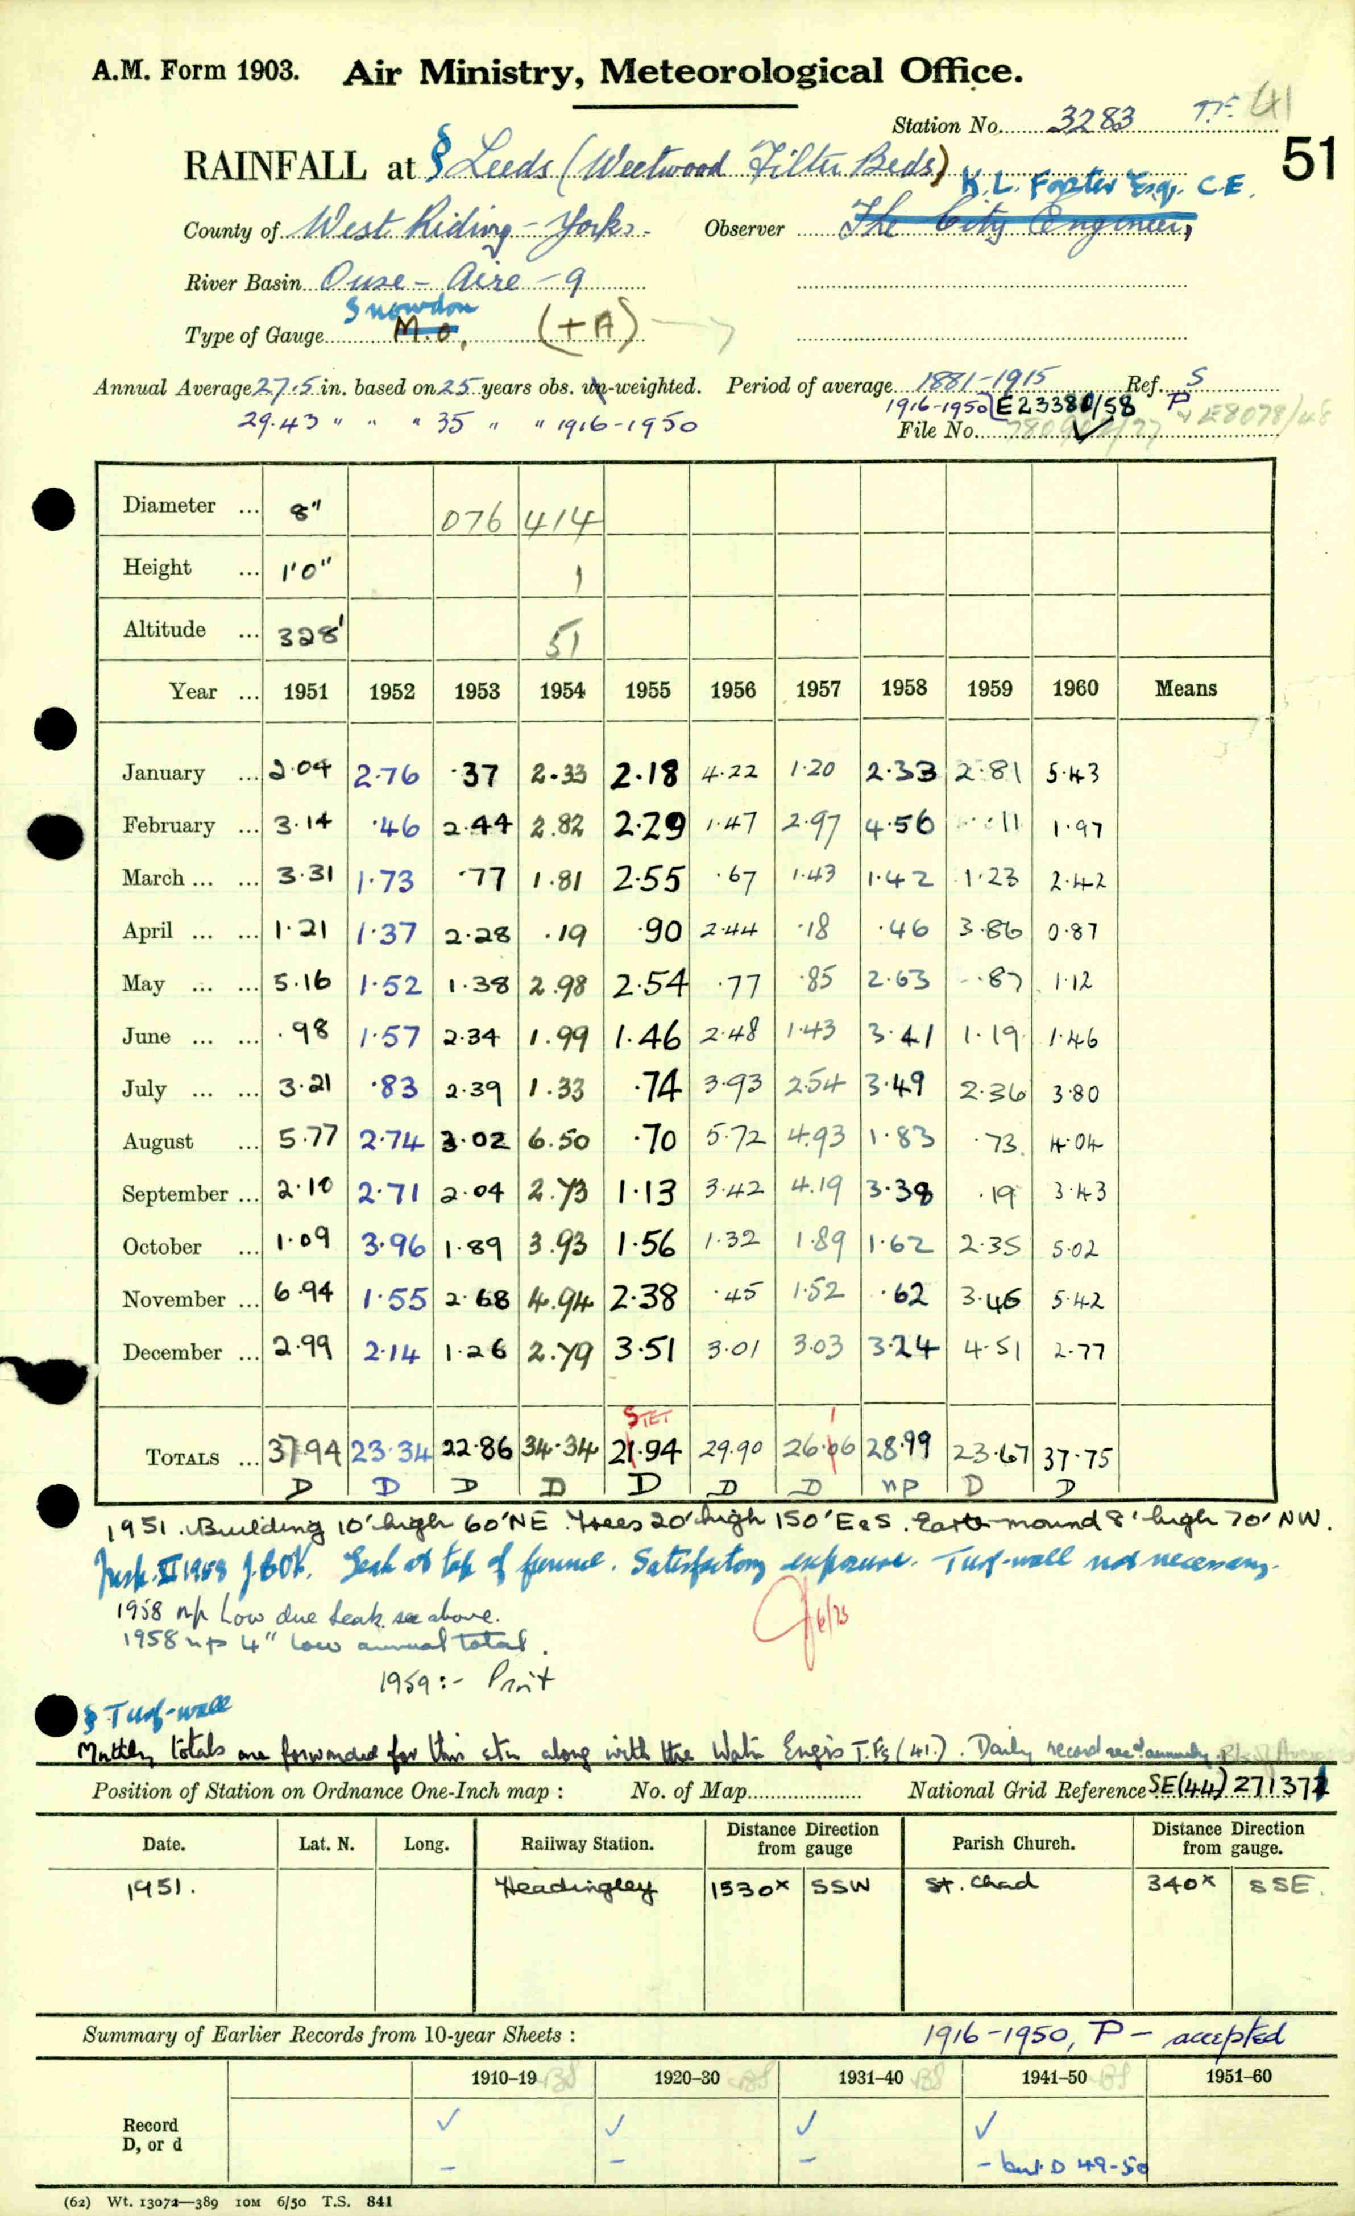 A.M. Form 1903. Air Ministry, Meteorological Office.
Station No. 3283 T.F. 41
51
RAINFALL at § Leeds (Weetwood Filter Beds)
K.L. Forster Esq. C.E.
County of West Riding - Yorks. Observer The City Engineer,
River Basin Ouse - Aire - 9
Snowdon
Type of Gauge M.O. (+A)
Annual Average 27.5 in. based on 25 years obs. un-weighted. Period of average 1881-1915 Ref. S
1916-1950 E23380/58 P
29.43 " " " 35 " " 1916-1950
File No. E8078/48
Diameter ... 8" 076 414
Height ... 1'0" 1
Altitude ... 328' 51
Year ... 1951 1952 1953 1954 1955 1956 1957 1958 1959 1960 Means
January ... 2.04 2.76 .37 2.33 2.18 4.22 1.20 2.33 2.81 5.43
February ... 3.14 .46 2.44 2.82 2.29 1.47 2.97 4.56 .11 1.97
March ... ... 3.31 1.73 .77 1.81 2.55 .67 1.43 1.42 1.23 2.42
April ... ... 1.21 1.37 2.28 .19 .90 2.44 .18 .46 3.86 0.87
May ... ... 5.16 1.52 1.38 2.98 2.54 .77 .85 2.63 .87 1.12
June ... ... .98 1.57 2.34 1.99 1.46 2.48 1.43 3.41 1.19 1.46
July ... ... 3.21 .83 2.39 1.33 .74 3.93 2.54 3.49 2.36 3.80
August ... 5.77 2.74 3.02 6.50 .70 5.72 4.93 1.83 .73 4.04
September ... 2.10 2.71 2.04 2.73 1.13 3.42 4.19 3.38 .19 3.43
October ... 1.09 3.96 1.89 3.93 1.56 1.32 1.89 1.62 2.35 5.02
November ... 6.94 1.55 2.68 4.94 2.38 .45 1.52 .62 3.46 5.42
December ... 2.99 2.14 1.26 2.79 3.51 3.01 3.03 3.24 4.51 2.77
STET 1
TOTALS ... 37.94 23.34 22.86 34.34 21.94 29.90 26.06 28.99 23.67 37.75
D D D D D D D np D D
1951. Building 10' high 60' NE. Trees 20' high 150' E & S. Earth mound 8' high 70' NW.
Insp. II 1958 Leak at top of funnel. Satisfactory exposure. Turf-wall not necessary.
1958 np Low due leak see above.
6/73
1958 np 4" low annual total.
1959:- Print
§ Turf-wall
Monthly totals are forwarded for this stn along with the Water Engrs T.Fs (41.). Daily record rec'd annually.
Position of Station on Ordnance One-Inch map : No. of Map National Grid Reference SE(44) 271371
Date. Lat. N. Long. Railway Station. Distance from gauge Direction Parish Church. Distance from gauge. Direction
1951. Headingley 1530x SSW St. Chad 340x SSE.
Summary of Earlier Records from 10-year Sheets : 1916-1950, P - accepted
1910-19 1920-30 1931-40 1941-50 1951-60
Record ✓ ✓ ✓ ✓
D, or d
- - - - but D 49-50
(62) Wt. 13072—389 10M 6/50 T.S. 841